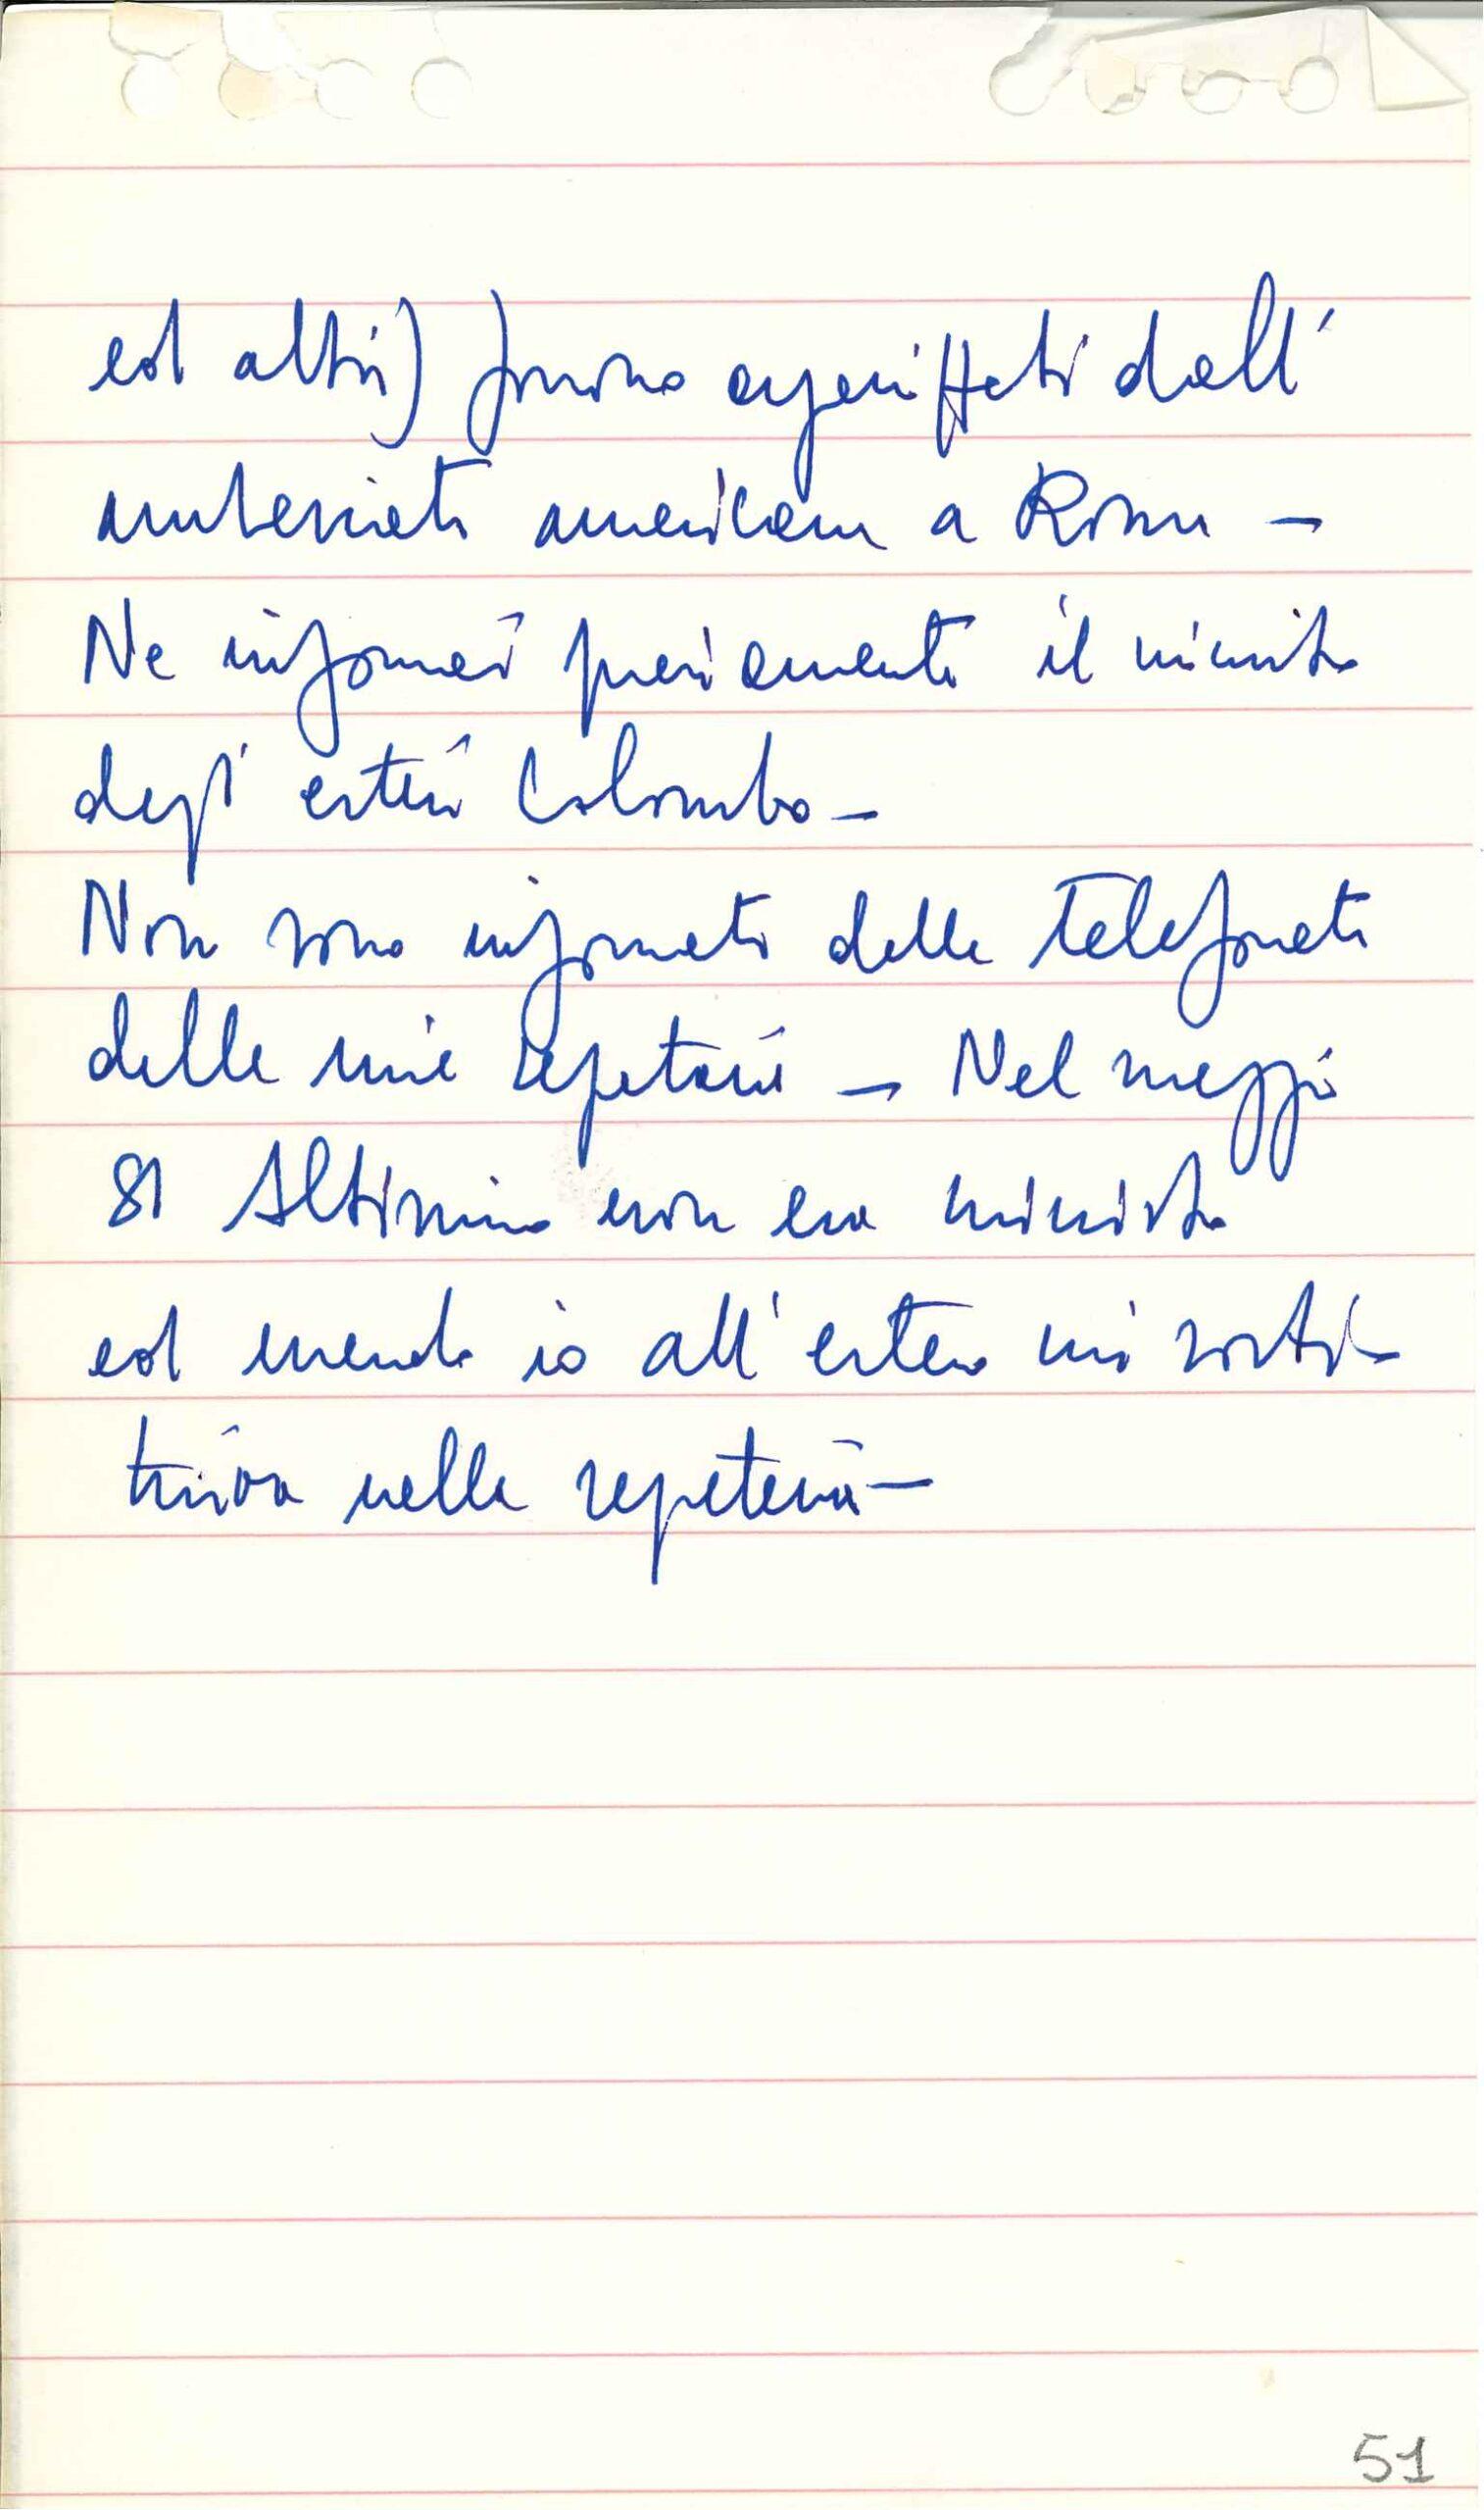 ed altri) furono organizzati dall'
ambasciata americana a Roma -
Ne informai previamente il ministro
degli esteri Colombo -
Non sono informato delle telefonate
delle mie segretarie - Nel maggio
81 Altissimo non era ministro
ed essendo io all'estero mi sosti-
tuiva nella segreteria -
51